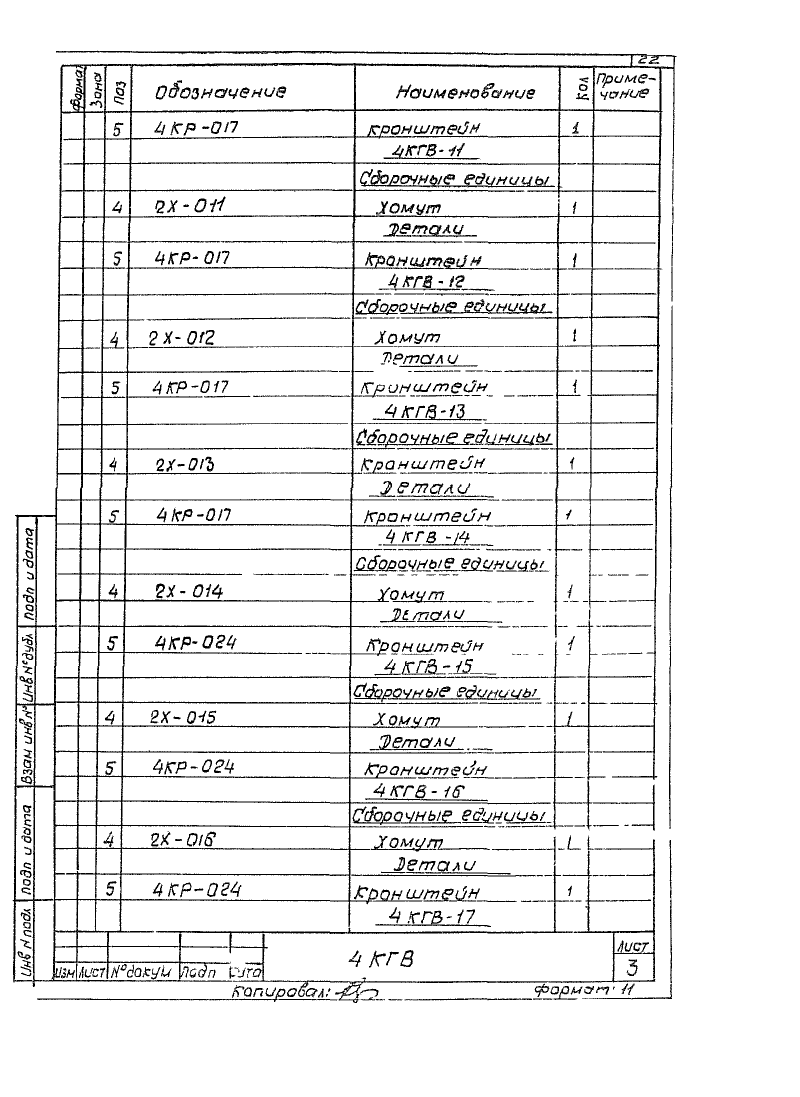 22
Форма Зона Поз Обозначение Наименование Кол Приме-
чание
5 4КР-017 Кронштейн 1
4КГВ-11
Сборочные единицы
4 2Х-011 Хомут 1
Детали
5 4КР-017 Кронштейн 1
4КГВ-12
Сборочные единицы
4 2Х-012 Хомут 1
Детали
5 4КР-017 Кронштейн 1
4КГВ-13
Сборочные единицы
4 2Х-013 Кронштейн 1
Детали
5 4КР-017 Кронштейн 1
4КГВ-14
Сборочные единицы
4 2Х-014 Хомут 1
Детали
5 4КР-024 Кронштейн 1
4КГВ-15
Сборочные единицы
4 2Х-015 Хомут 1
Детали
5 4КР-024 Кронштейн
4КГВ-16
Сборочные единицы
4 2Х-016 Хомут 1
Детали
5 4КР-024 Кронштейн 1
4КГВ-17
Инв N подл Подп и дата Взам инв № Инв № дубл Подп и дата
Изм Лист № докум Подп Дата
4 КГВ
Лист
3
Копировал:
Формат 11